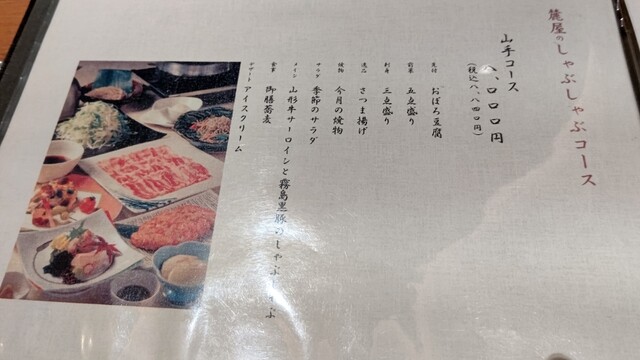 麓屋のしゃぶしゃぶコース
山手コース 八、〇〇〇円
(税込八、八〇〇円)
先付 おぼろ豆腐
前菜 五点盛り
お刺身 三点盛り
逸品 さつま揚げ
焼物 今月の焼物
サラダ 季節のサラダ
メイン 山形牛サーロインと霧島黒豚のしゃぶしゃぶ
食事 御膳蕎麦
デザート アイスクリーム